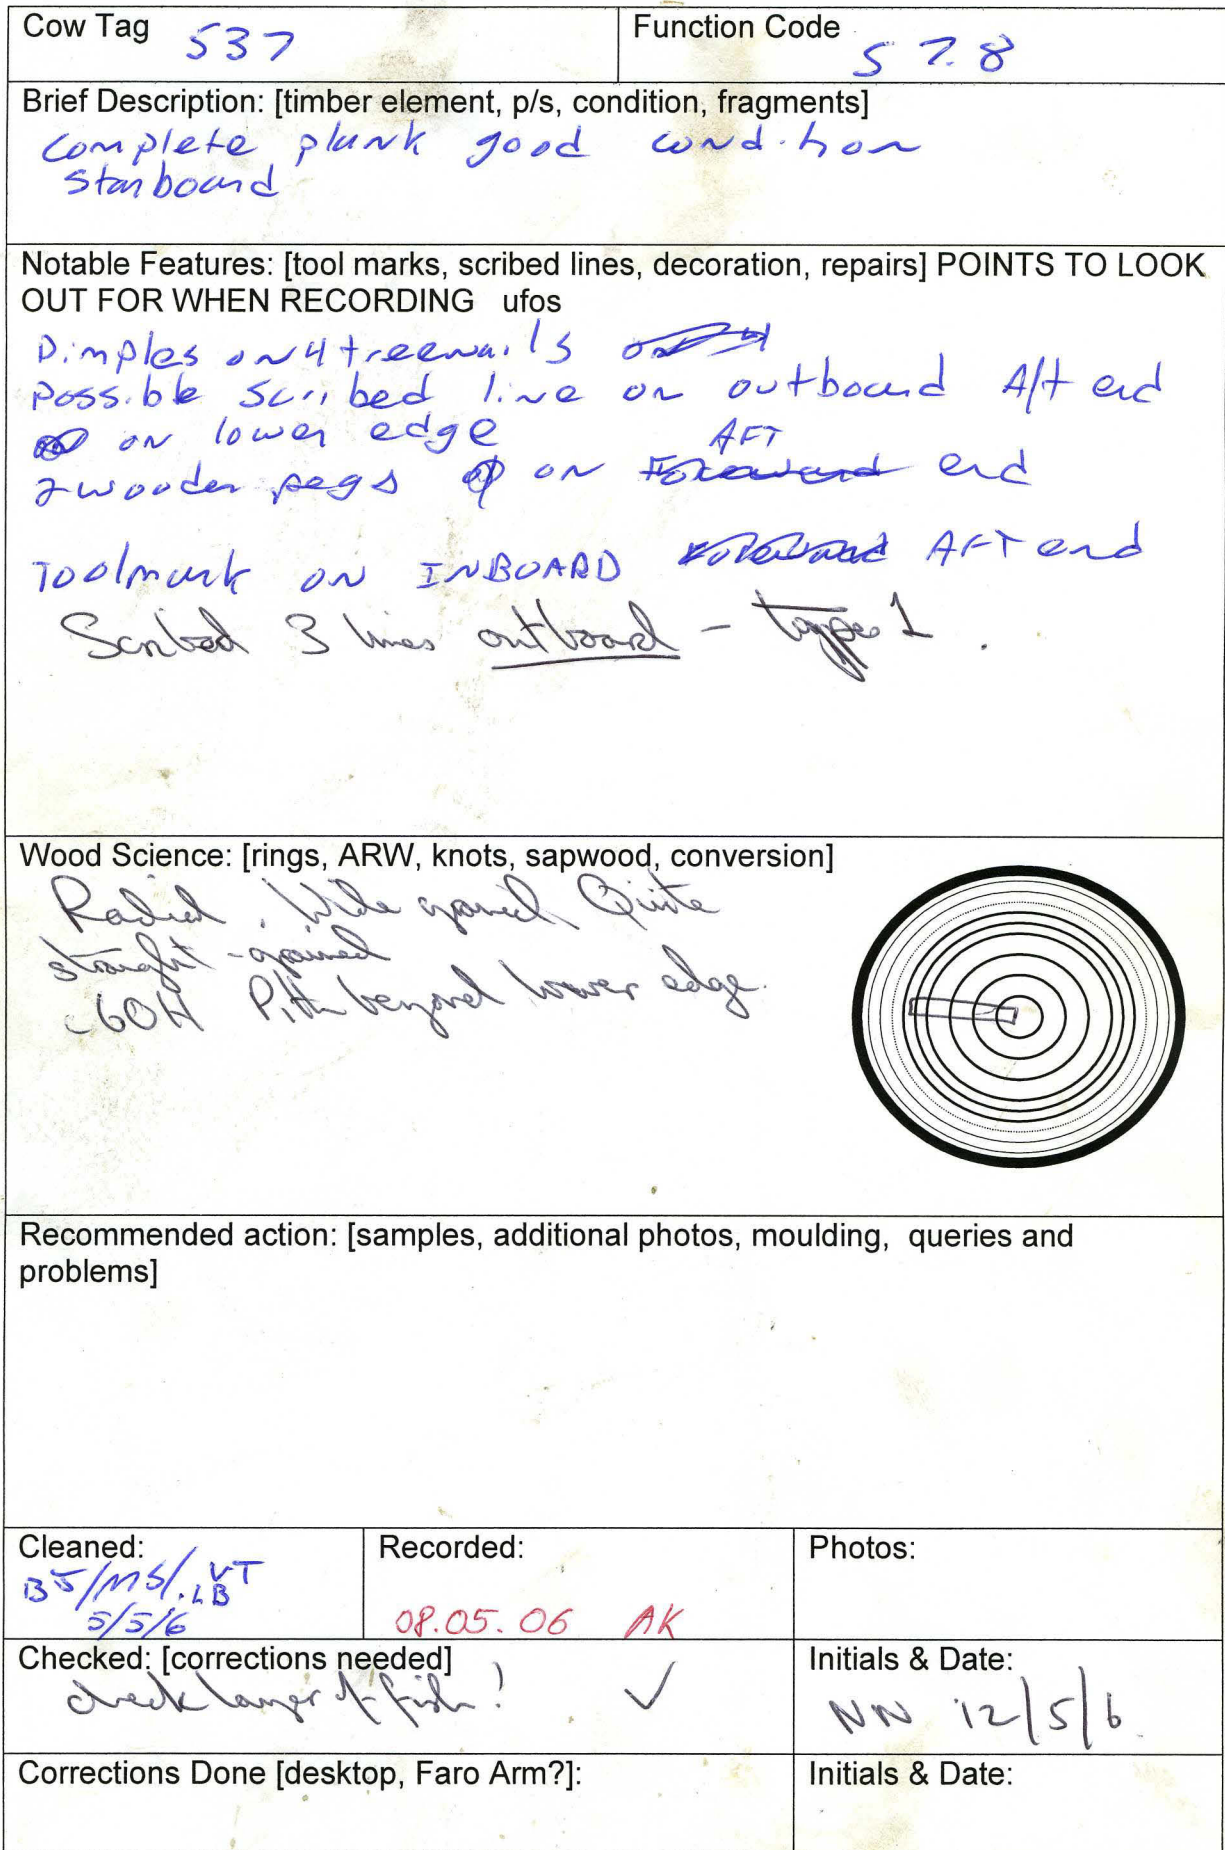 Cow Tag 537
Function Code S 7.8
Brief Description: [timber element, p/s, condition, fragments]
Complete plank good condition
Starboard
Notable Features: [tool marks, scribed lines, decoration, repairs] POINTS TO LOOK
OUT FOR WHEN RECORDING ufos
Dimples on 4 treenails
Possible scribed line on outboard Aft end
on lower edge
2 wooden pegs on AFT end
Toolmark on INBOARD AFT end
Scribed 3 lines outboard - type 1.
Wood Science: [rings, ARW, knots, sapwood, conversion]
Radial. Wide grained, Quite
straight-grained
60H Pith beyond lower edge.
Recommended action: [samples, additional photos, moulding, queries and
problems]
Cleaned:
BJ/MS/LB VT
5/5/6
Recorded:
08.05.06 AK
Photos:
Checked: [corrections needed]
check layer ✓
Initials & Date:
NN 12/5/6
Corrections Done [desktop, Faro Arm?]:
Initials & Date: